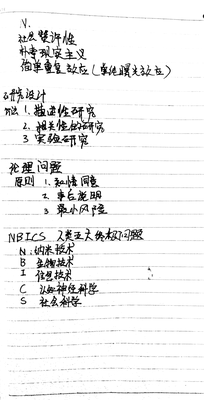 V.
社会赞许性
朴素现实主义
简单重复效应（单纯曝光效应）
研究设计
方法 1. 描述性研究
2. 相关性的研究
3. 实验研究
伦理问题
原则 1. 知情同意
2. 事后说明
3. 最小风险
NBICS 人类五大终极问题
N: 纳米技术
B 生物技术
I 信息技术
C 认知神经科学
S 社会科学